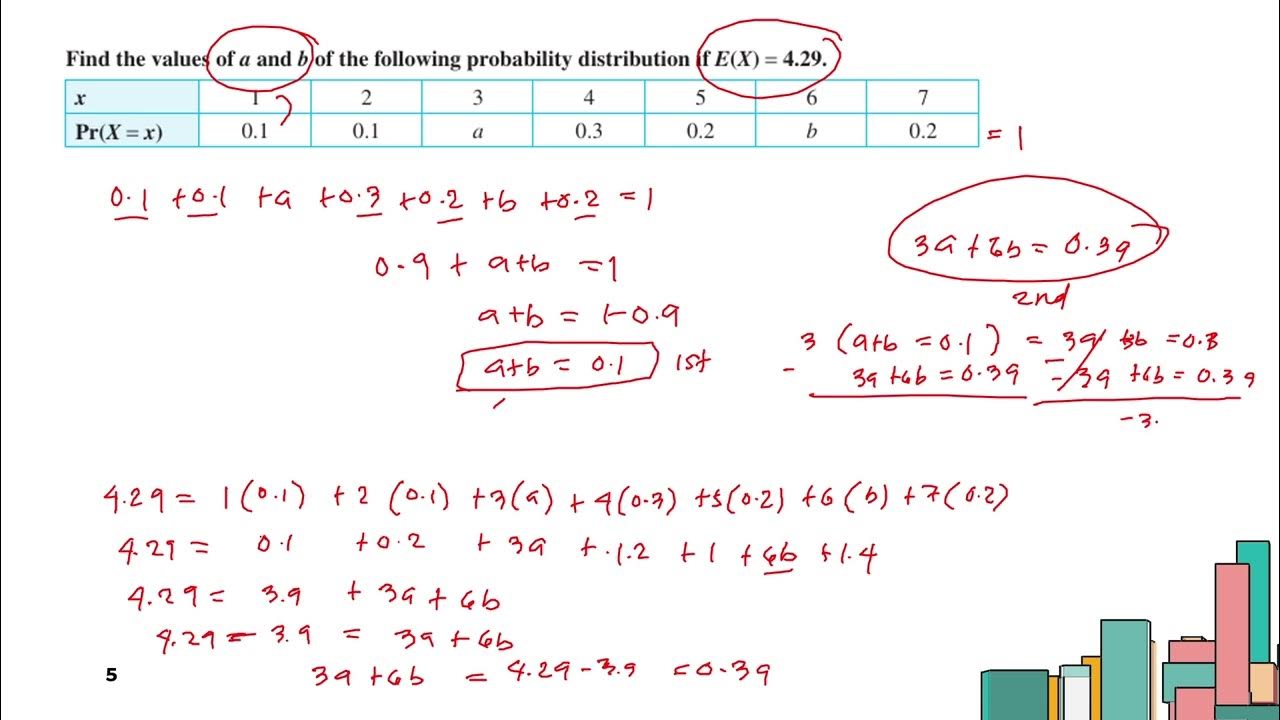 Find the values of a and b of the following probability distribution if E(X) = 4.29.
x 1 2 3 4 5 6 7
Pr(X = x) 0.1 0.1 a 0.3 0.2 b 0.2 = 1
0.1 + 0.1 + a + 0.3 + 0.2 + b + 0.2 = 1
0.9 + a+b = 1
a+b = 1-0.9
a+b = 0.1 1st
3a + 6b = 0.39
2nd
3 (a+b = 0.1) = 3a + 3b = 0.3
- 3a + 6b = 0.39 - 3a + 6b = 0.39
-3.
4.29 = 1(0.1) + 2(0.1) + 3(a) + 4(0.3) + 5(0.2) + 6(b) + 7(0.2)
4.29 = 0.1 + 0.2 + 3a + 1.2 + 1 + 6b + 1.4
4.29 = 3.9 + 3a + 6b
4.29 - 3.9 = 3a + 6b
3a + 6b = 4.29 - 3.9 = 0.39
5